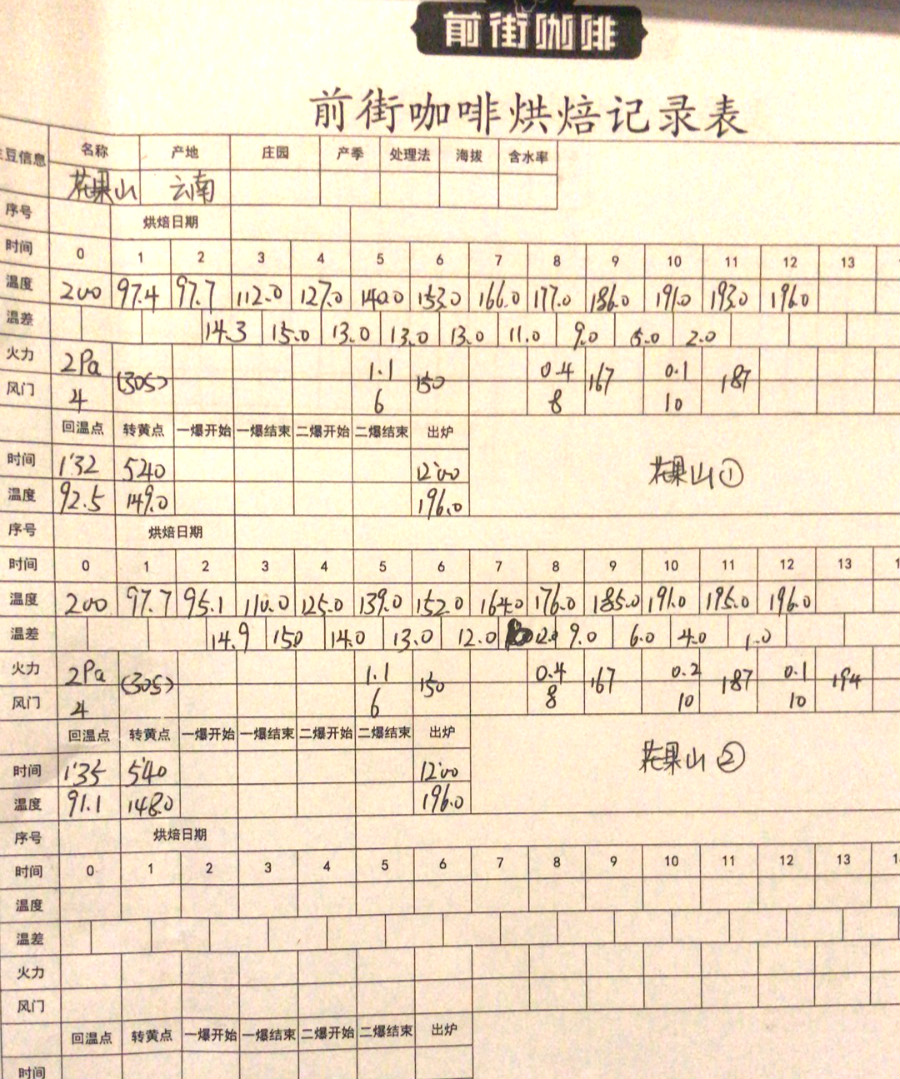 前街咖啡
前街咖啡烘焙记录表
豆信息 名称 产地 庄园 产季 处理法 海拔 含水率
花果山 云南
序号 烘焙日期
时间 0 1 2 3 4 5 6 7 8 9 10 11 12 13
温度 200 97.4 97.7 112.0 127.0 140.0 153.0 166.0 177.0 186.0 191.0 193.0 196.0
温差 14.3 15.0 13.0 13.0 13.0 11.0 9.0 5.0 2.0
火力 2Pa (305) 1.1 150 0.4 167 0.1 187
风门 4 6 8 10
回温点 转黄点 一爆开始 一爆结束 二爆开始 二爆结束 出炉
时间 1'32 540 12'00 花果山①
温度 92.5 149.0 196.0
序号 烘焙日期
时间 0 1 2 3 4 5 6 7 8 9 10 11 12 13
温度 200 97.7 95.1 110.0 125.0 139.0 152.0 164.0 176.0 185.0 191.0 195.0 196.0
温差 14.9 150 14.0 13.0 12.0 9.0 6.0 4.0 1.0
火力 2Pa (305) 1.1 150 0.4 167 0.2 187 0.1 194
风门 4 6 8 10 10
回温点 转黄点 一爆开始 一爆结束 二爆开始 二爆结束 出炉
时间 1'35 5'40 12'00 花果山②
温度 91.1 148.0 196.0
序号 烘焙日期
时间 0 1 2 3 4 5 6 7 8 9 10 11 12 13
温度
温差
火力
风门
回温点 转黄点 一爆开始 一爆结束 二爆开始 二爆结束 出炉
时间